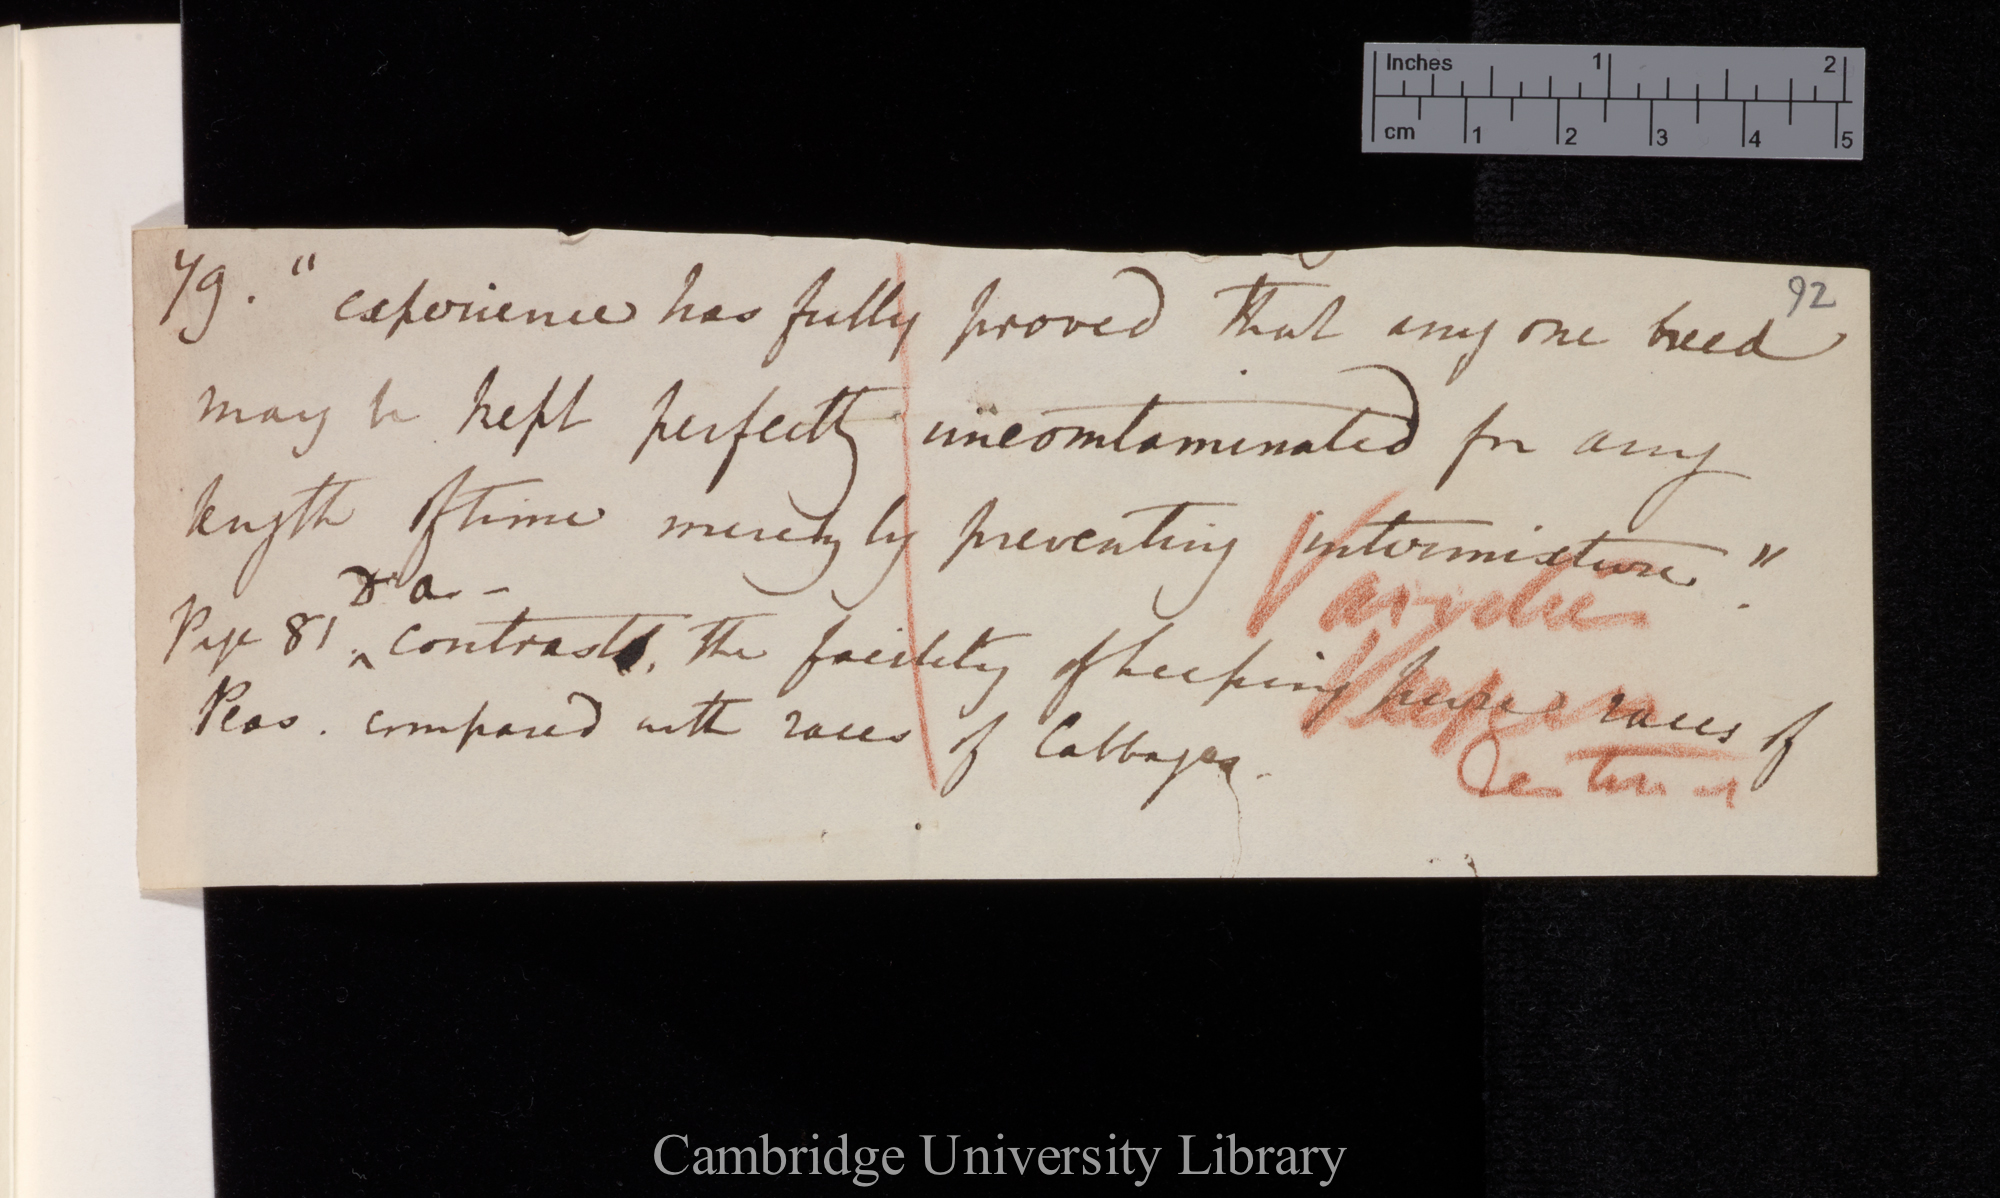 Inches 1 2
cm 1 2 3 4 5
92
79. " experience has fully proved that any one breed
may be kept perfectly uncontaminated for any
length of time merely by preventing intermixture."
Dr a. -
Page 81. ^ contrasts, the facility of keeping pure races of
Peas. compared with races of Cabbages.
Varieties
Keeping
Cambridge University Library